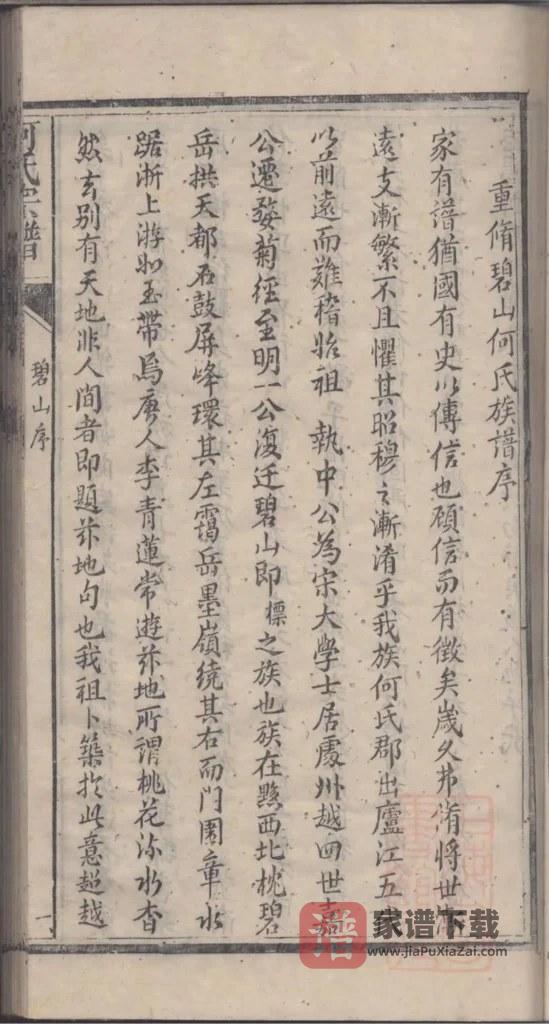 重脩碧山何氏族譜序
家有譜猶國有史以傳信也顧信而有徵矣歲久弗脩將世
遠支漸繁不且懼其昭穆之漸淆乎我族何氏郡出廬江五
以前遠而難稽始祖 執中公為宋大學士居處州越四世嘉
公遷婺菊徑至明一公復迁碧山即標之族也族在黟西北枕碧
岳拱天都石鼓屏峰環其左靄岳墨嶺繞其右而門圜章水
踞浙上游如玉帶焉唐人李青蓮常遊茲地所謂桃花流水杳
然去別有天地非人間者即題茲地句也我祖卜築於此意超越
何氏宗譜
碧山序
一
譜
家谱下载
www.JiaPuXiaZai.com